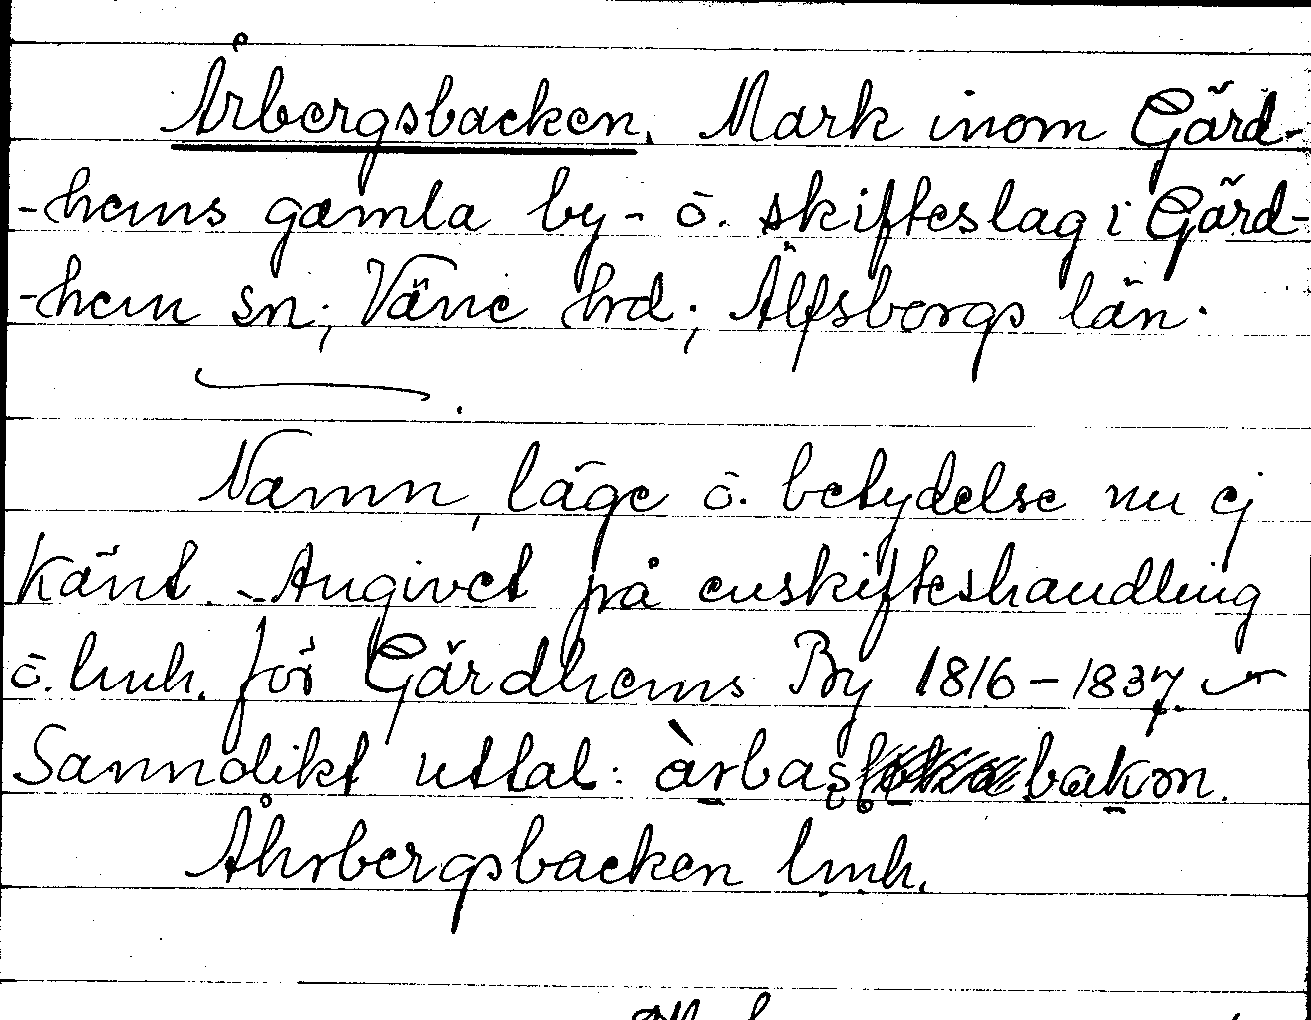 Årbergsbacken. Mark inom Gärd-
-hems gamla by- ö. skifteslag i Gärd-
-hem sn; Väne hrd; Älfsborgs län.
Namn, läge ö. betydelse nu ej
känt. - Angivet på enskifteshandling
ö. lmh. för Gärdhems By 1816-1837.
Sanndikt uttal: àrbas bakɔn.
Åhrbergsbacken lmh.